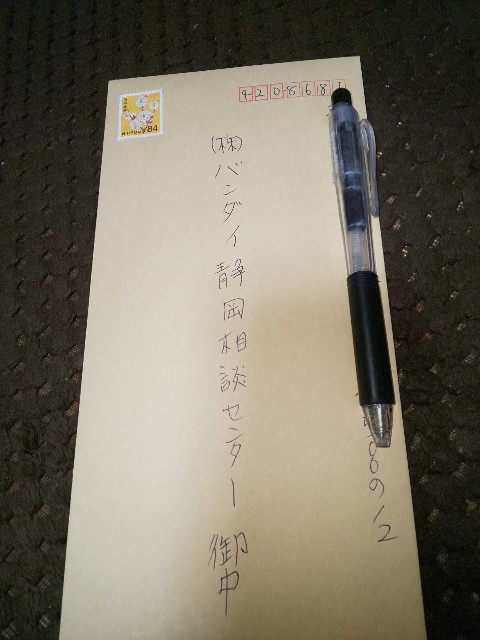 4208681
84
(株)バンダイ静岡相談センター 御中
00の12